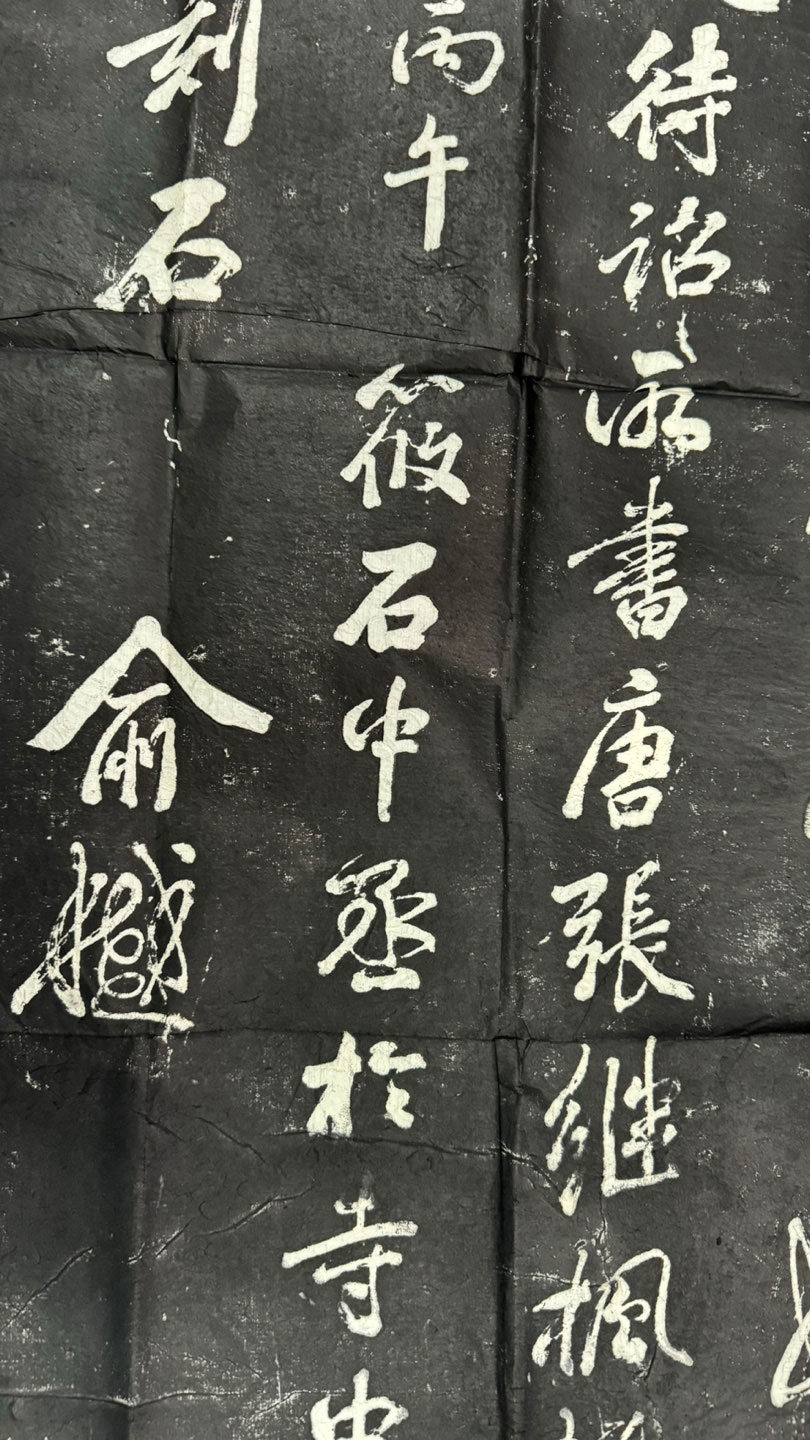 待詔所書唐張继楓
丙午 筱石中丞於寺中
刻石 俞樾